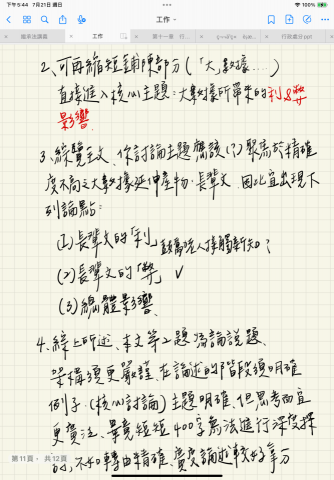 下午5:44 7月21日 週日
100%
工作
繼承法講義
工作
第十一章 行...
行政處分ppt
2、可再縮短鋪陳部分(「大」數據....)
直接進入核心主題:大數據所帶來的利&弊
影響
3、綜覽全文,你討論主題應該(?)聚焦於精確
度不高之大數據延伸產物-長輩文 因此宜出現下
列論點:
(1)長輩文的「利」鼓勵老人接觸新知?
(2)長輩文的「弊」 ✓
(3)總體影響
4、綜上所述、本文等2題為論說題、
架構須更嚴謹、在論述的階段須明確
例子、(核心討論)主題明確、但思考面宜
更廣泛、畢竟短短400字無法進行深度探
討,不如轉由精確、廣度論述較好拿分
第11頁,共12頁